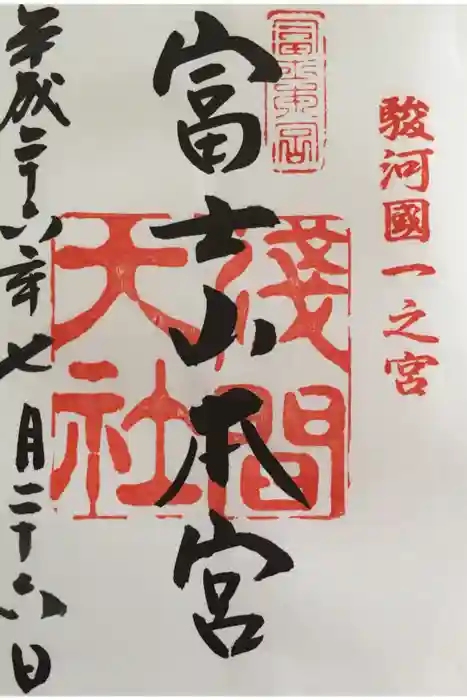 駿河國一之宮
富士山本宮
淺間
大社
平成二十六年七月二十六日